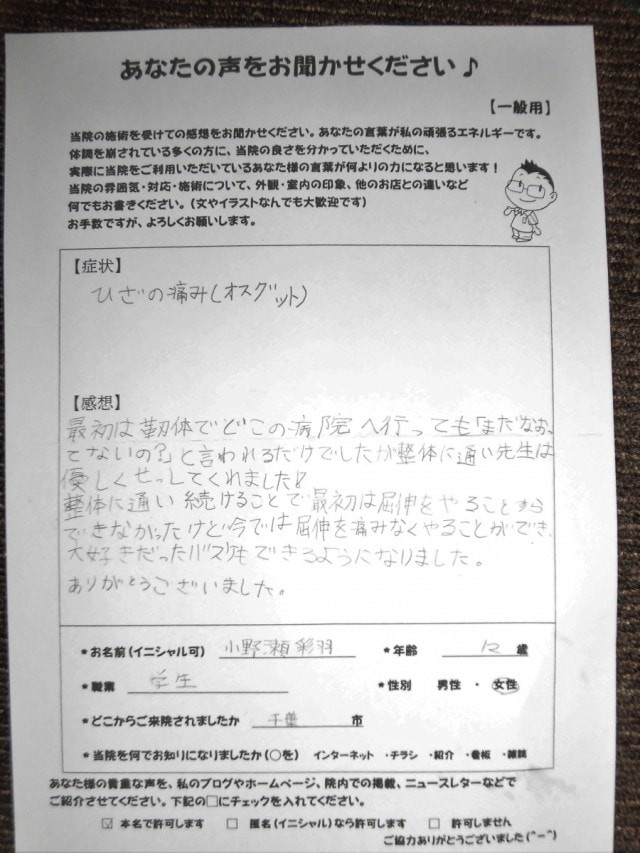 あなたの声をお聞かせください♪
【一般用】
当院の施術を受けての感想をお聞かせください。あなたの言葉が私の頑張るエネルギーです。
体調を崩されている多くの方に、当院の良さを分かっていただくために、
実際に当院をご利用いただいているあなた様の言葉が何よりの力になると思います！
当院の雰囲気・対応・施術について、外観・室内の印象、他のお店との違いなど
何でもお書きください。（文やイラストなんでも大歓迎です）
お手数ですが、よろしくお願いします。
【症状】
ひざの痛み(オスグット)
【感想】
最初は靭体でどこの病院へ行っても「まだなおっ
てないの?」と言われるだけでしたが整体に通い先生は
優しくせっしてくれました!
整体に通い続けることで最初は屈伸をやることすら
できなかったけど今では屈伸を痛みなくやることができ、
大好きだったバスケもできるようになりました。
ありがとうございました。
*お名前(イニシャル可) 小野瀬彩羽 *年齢 12 歳
*職業 学生 *性別 男性 ・ 女性
*どこからご来院されましたか 千葉 市
*当院を何でお知りになりましたか(○を) インターネット ・チラシ ・紹介 ・看板 ・雑誌
あなた様の貴重な声を、私のブログやホームページ、院内での掲載、ニュースレターなどで
ご紹介させてください。下記の□にチェックを入れてください。
☑ 本名で許可します □ 匿名(イニシャル)なら許可します □ 許可しません
ご協力ありがとうございました(^-^)